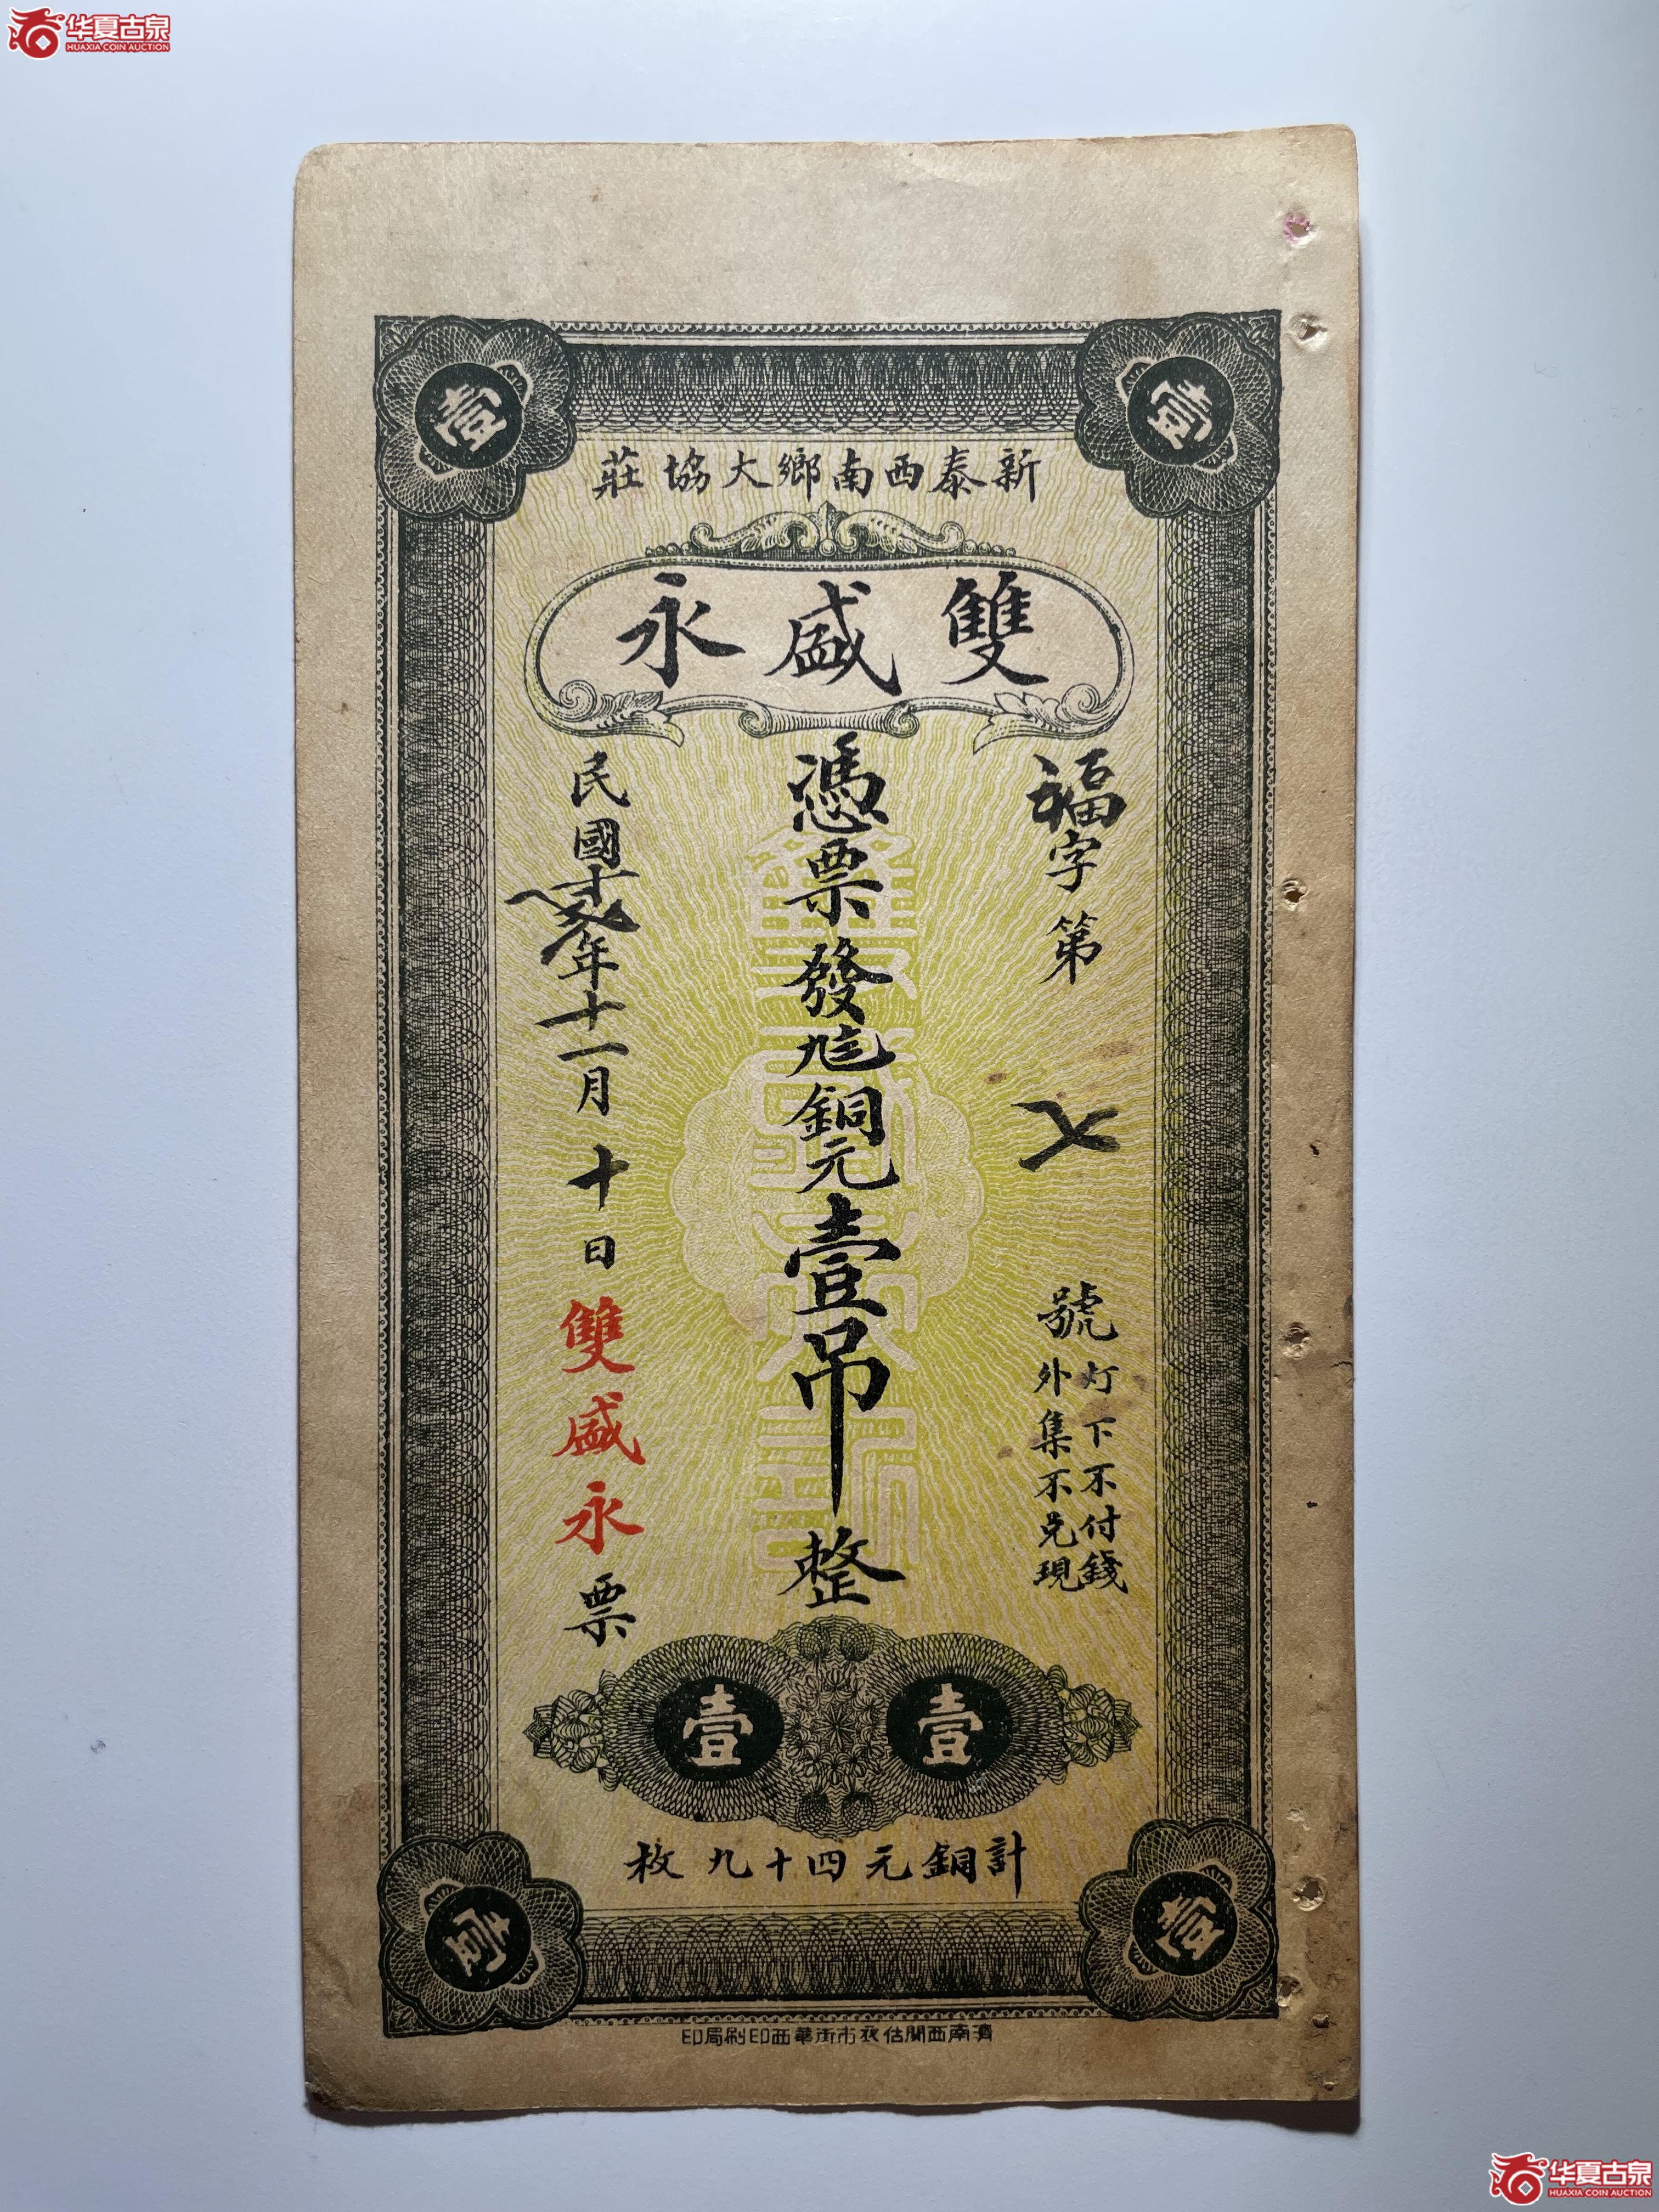 华夏古泉
HUAXIA COIN AUCTION
壹
壹
新泰西南鄉大協莊
雙盛永
福字第
號
灯下不付錢
外集不兌現
憑票發
銅元壹吊整
民國
年十一月十日雙盛永票
壹
壹
計銅元四十九枚
壹
壹
濟南西關估衣市街華西印刷局印
华夏古泉
HUAXIA COIN AUCTION